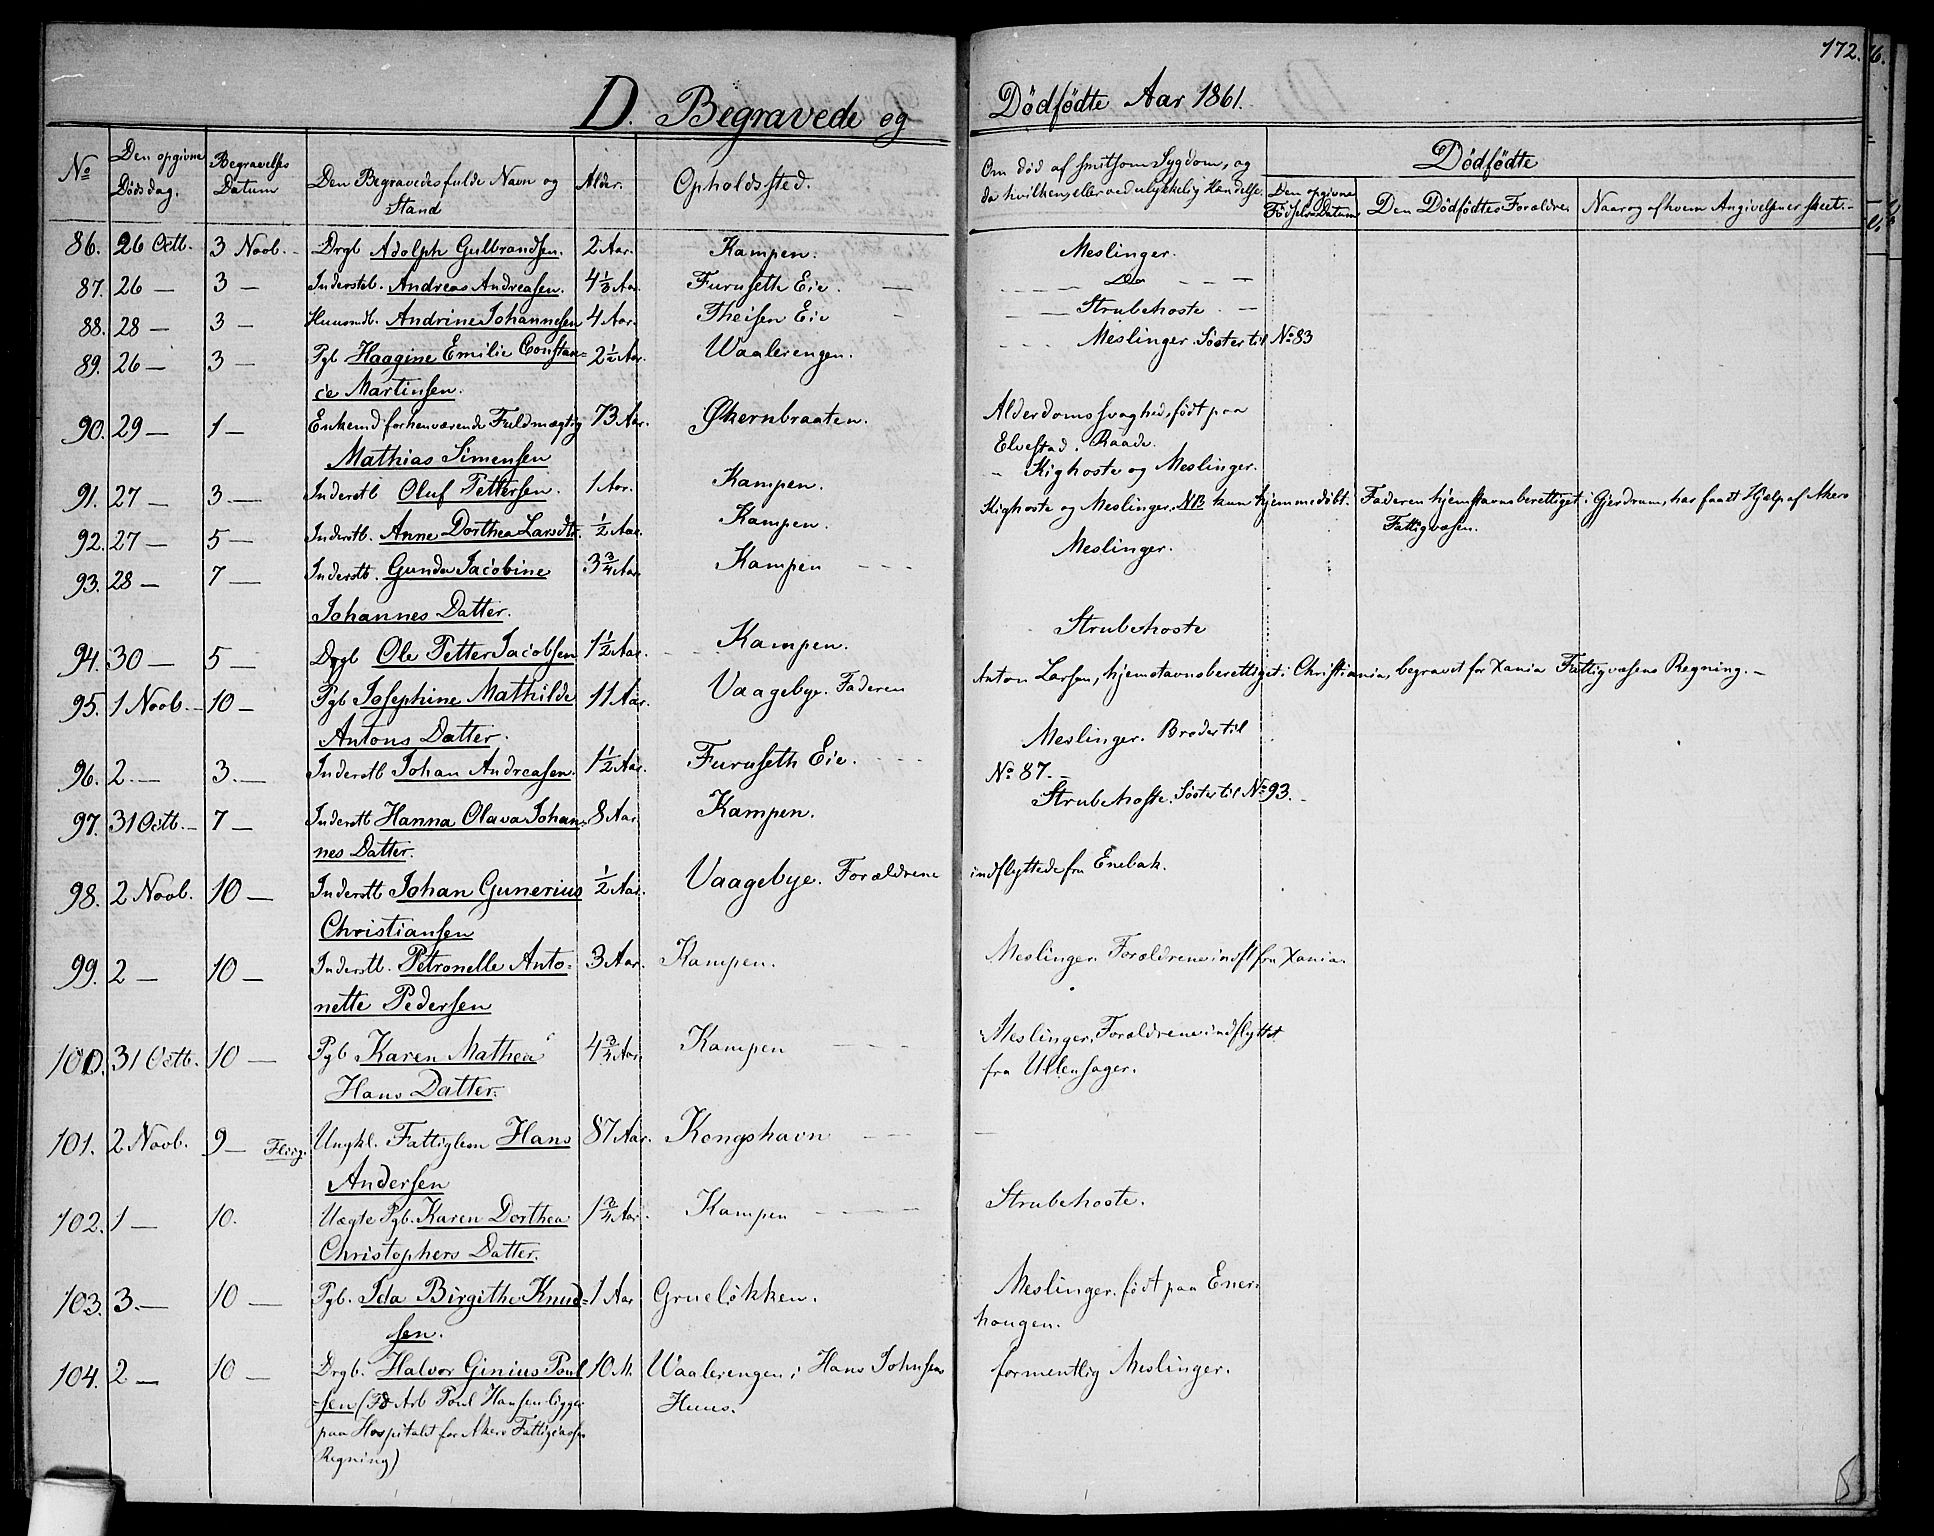 172.
D. Begravede og Dødfødte Aar 1861.
No
Den opgivne Dødsdag.
Begravelses Datum
Den Begravedes fulde Navn og Stand
Alder.
Opholdssted.
Om død af smitsom Sygdom, og da hvilken, eller ved ulykkelig Hændelse
Dødfødte
Den opgivne Fødsels Datum
Den Dødfødtes Forældre
Naar og af hvem Angivelsen er skeet.
86. 26 Octb. 3 Novb. Drgb Adolph Gulbrandsen. 2 Aar. Kampen. Meslinger.
87. 26 — 3 — Inderstb. Andreas Andreasen. 4 1/3 Aar. Furuseth Eie. — Do —
88. 28 — 3 — Huusmdb. Andrine Johannesen 4 Aar. Theisen Eie — Strubehoste —
89. 26 — 3 — Pgb Haagine Emilie Constan= 2 1/2 Aar. Waalerengen. Meslinger. Søster til No 83
ce Martinsen.
90. 29 — 1 — Enkemd forhenværende Fuldmægtig 73 Aar. Økernbraaten. Alderdomssvaghed, født paa
Mathias Simensen Elvestad i Raade.
91. 27 — 3 — Inderstb Oluf Pettersen. 1 Aar. Kampen. Kighoste og Meslinger.
92. 27 — 5 — Inderstb. Anne Dorthea Larsdtr. 1/2 Aar. Kampen. Kighoste og Meslinger. NB kun hjemmedøbt. Faderen hjemstavnsberettiget i Gjerdrum, har faaet Hjelp af Akers
Fattigvæsen.
93. 28 — 7 — Inderstb. Gunda Jacobine 3 3/4 Aar Kampen — Meslinger.
Johannes Datter.
94. 30 — 5 — Drgb Ole Petter Jacobsen 1 1/2 Aar. Kampen. Strubehoste
95. 1 Novb. — 10 — Pgb Josephine Mathilde 11 Aar. Vaagebye. Faderen Anton Larsen, hjemstavnsberettiget i Christiania, begravet for Xania Fattigvæsens Regning. —
Antons Datter.
96. 2. — 3. — Inderstb Johan Andreasen. 1 1/2 Aar. Furuseth Eie. Meslinger. Broder til
No 87. —
97. 31 Octb. — 7 — Inderstb Hanna Olava Johan= 8 Aar. Kampen. Strubehoste. Søster til No 93. —
nes Datter.
98. 2 Novb. 10 — Inderstb Johan Gunerius 1/2 Aar. Vaagebye. Forældrene indflyttede fra Enebak.
Christiansen
99. 2 — 10 — Inderstb. Petronelle Anto= 3 Aar. Kampen. Meslinger. Forældrene indfl fra Xania.
nette Pedersen
100. 31 Octb. 10 — Pgb Karen Mathea 4 3/4 Aar. Kampen — Meslinger. Forældrene indflyttet
Hans Datter. fra Ullensager.
101. 2 Novb. 9 — Ungkl. Fattiglem Hans 87 Aar. Kongshavn — —
Andersen
102. 1 — 10. Uægte Pgb. Karen Dorthea 1 3/4 Aar. Kampen — Strubehoste.
Christophers Datter.
103. 3. — 10 — Pgb. Ida Birgithe Knud= 1 Aar Grueløkken. Meslinger. født paa Ener=
sen. hougen.
104. 2 — 10 — Drgb. Halvor Ginius Poul 10 M. Waalerengen i Hans Johnsens formentlig Meslinger.
=sen (Fd Arb Poul Hansen ligger Huus.
paa Hospitalet for Akers Fattigvæsens
Regning)